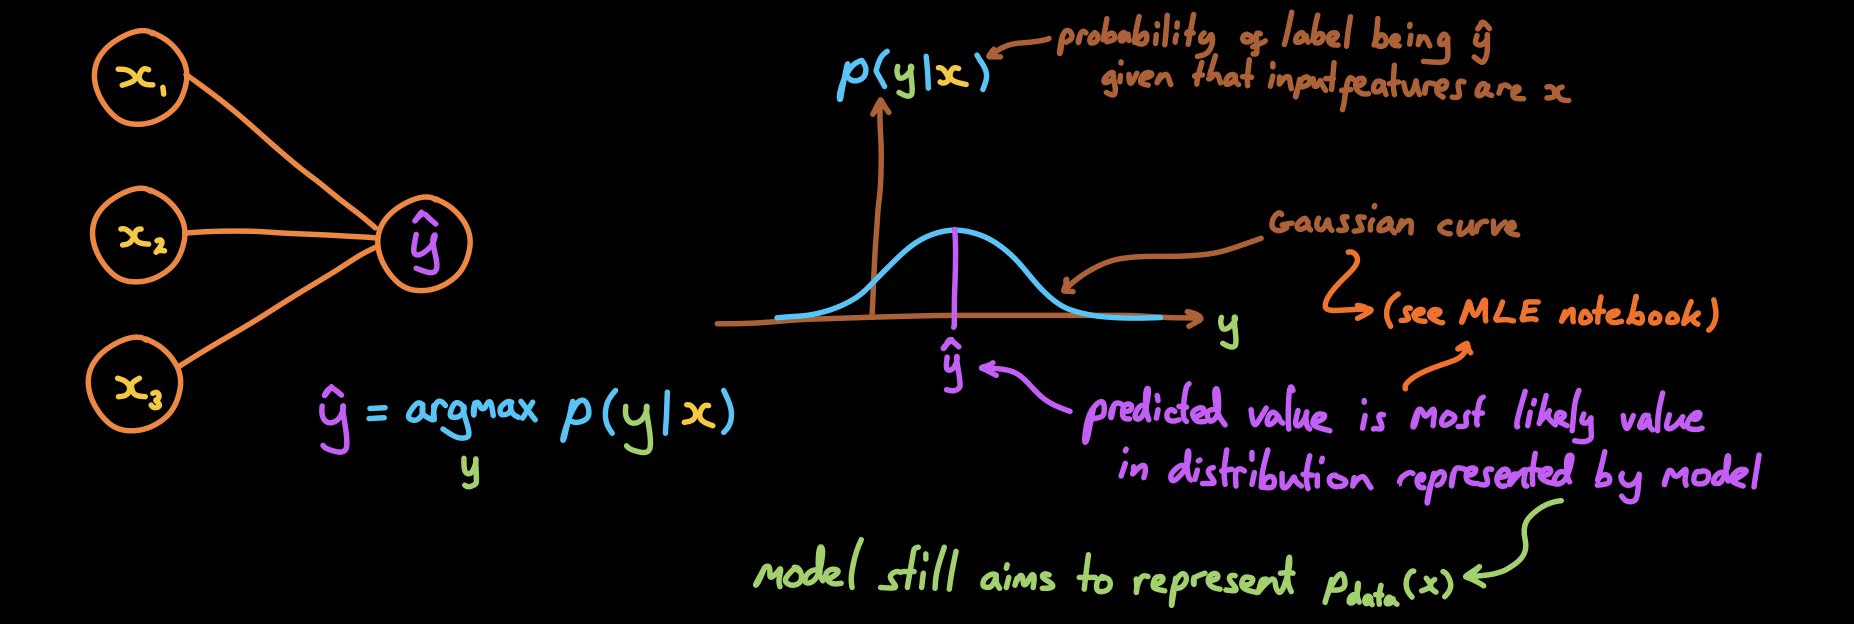 x₁
x₂
x₃
ŷ
ŷ = argmax p(y|x)
y
p(y|x)
probability of label being ŷ
given that input features are x
Gaussian curve
(see MLE notebook)
y
ŷ
predicted value is most likely value
in distribution represented by model
model still aims to represent p_data(x)